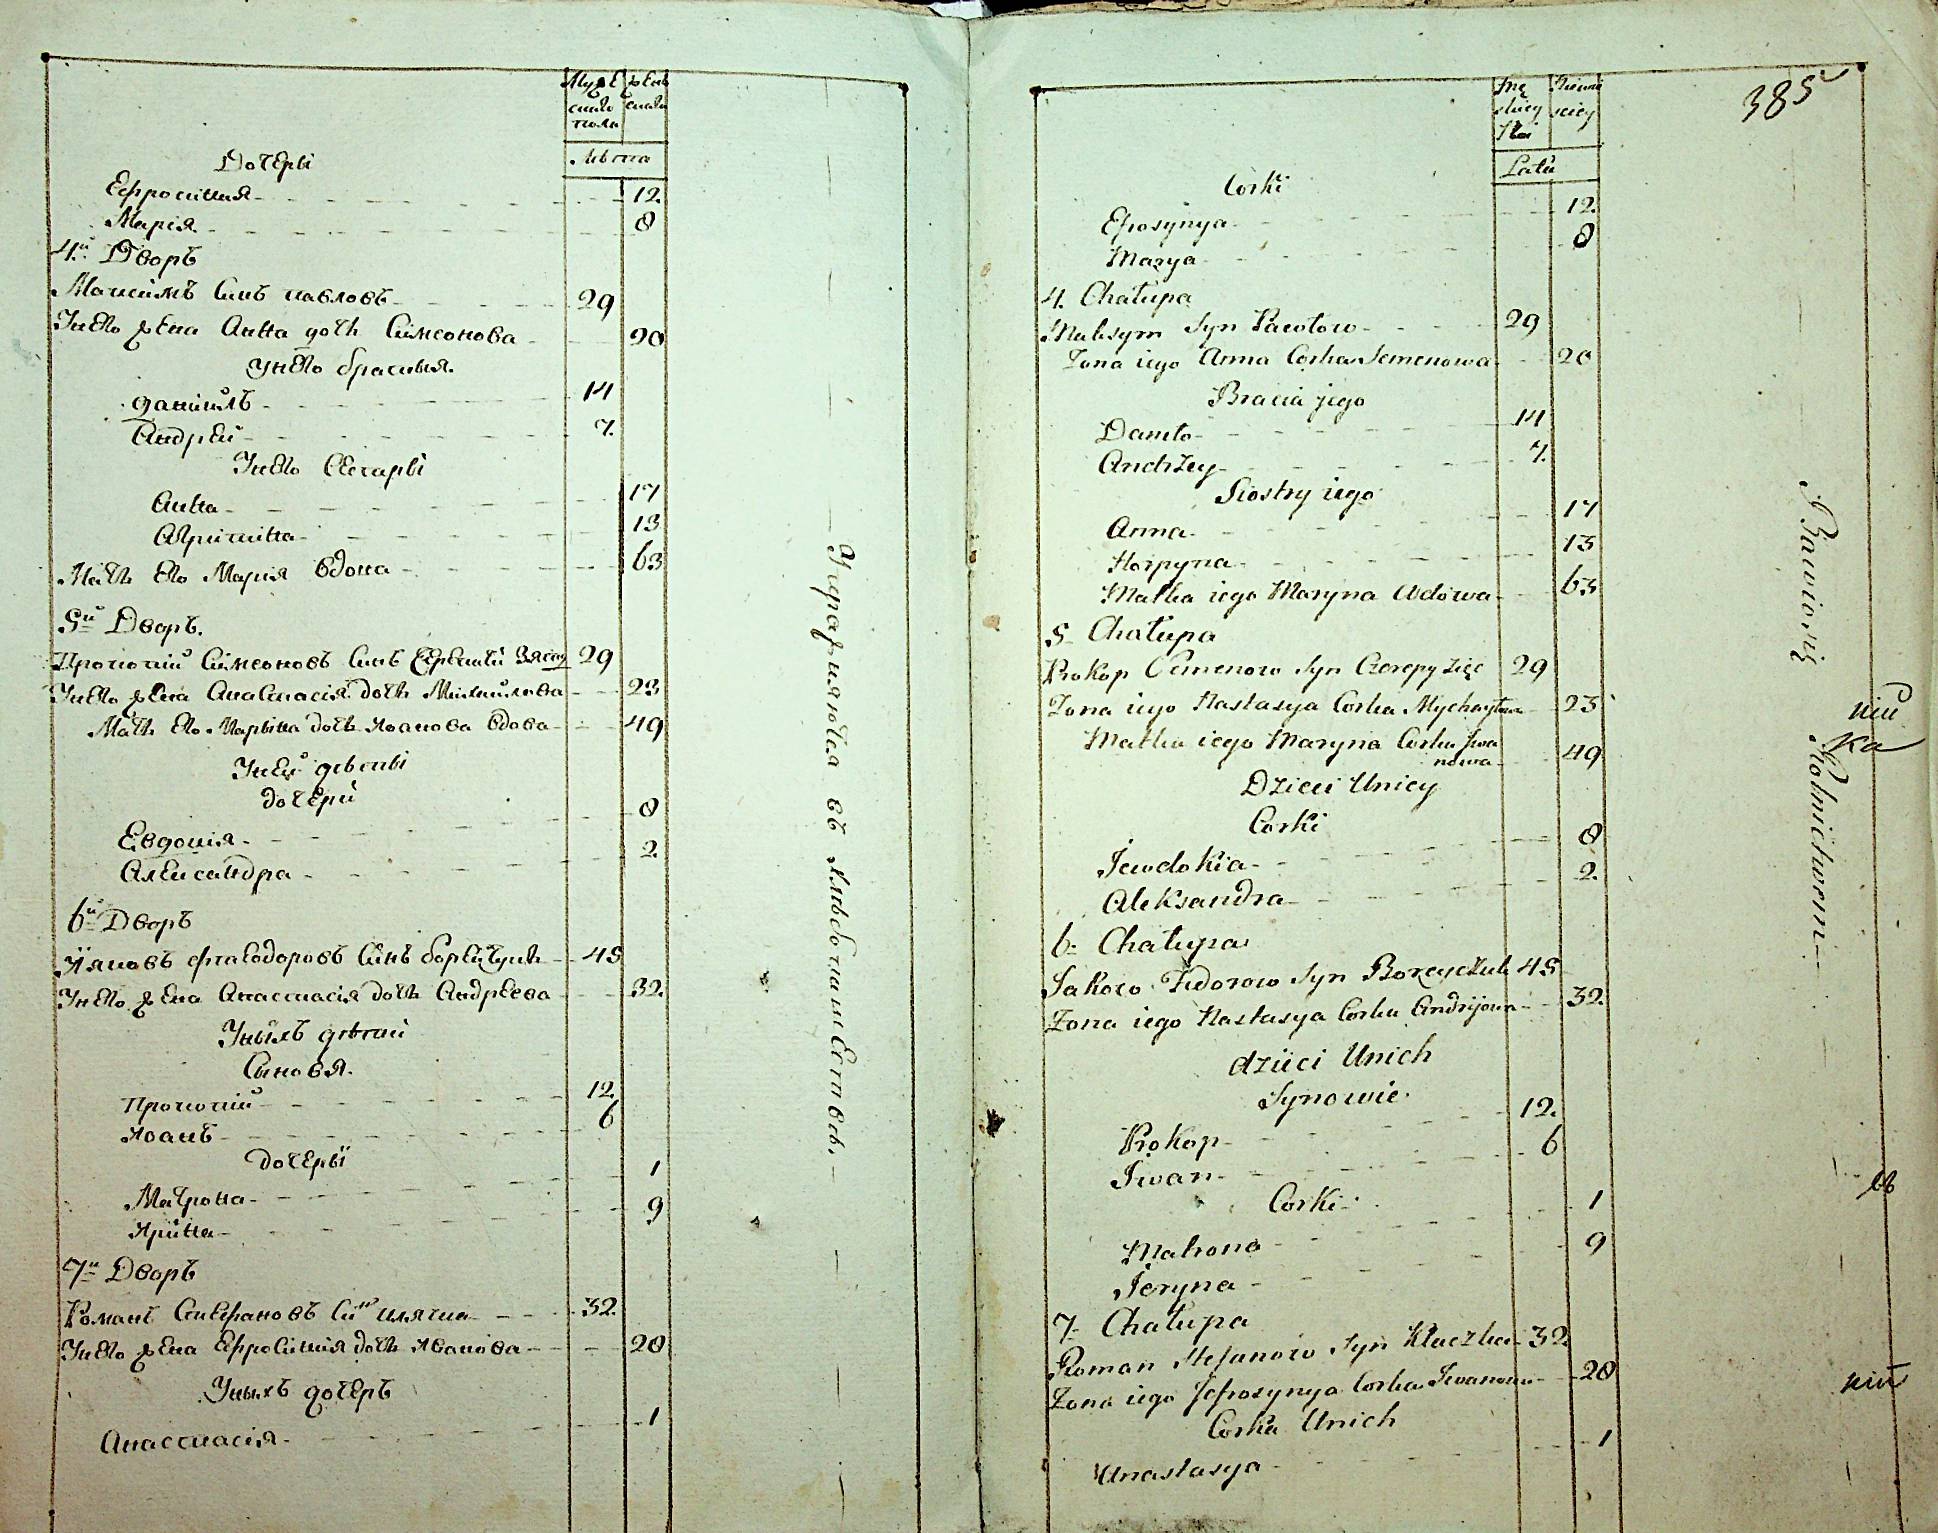 Мужескаго полу
Женскаго
Лѣта
Дочерѣ
Ефросиния 12
Марія 8
4й Дворъ
Максимъ Синъ павловъ 29
Унего жена Анна дочь Симеонова 20
унего братья
даніилъ 14
Андрей 7
Унего Сестарѣ
Анна 17
Агрипина 13
Мать его Мария вдова 63
5й Дворъ.
Прокопій Симеоновъ Синъ 29
Унего жена Анастасія дочь Михайлова 23
Мать его Марына дочь Иоанова вдова 49
Унихъ дѣти
дочери
Евдокия 8
Александра 2
6й Дворъ
Ияковъ Фтеодоровъ Синъ борщичукъ 45
Унего жена Анастасія дочь Андреева 32
Унихъ дѣтей
Сыновя
Прокопій 12
Иоанъ 6
дочерѣ
Матрона 1
Ирина 9
7й Дворъ
Романъ Стефановъ Синъ Клячка 32
Унего жена Ефросиния дочь Иванова 20
Унихъ дочеръ
Анастасія 1
Упражняются въ хлѣбопашествѣ.
385
Męskiey płci
Żeńskiey
Lata
Corki
Efrosynya 12
Marya 8
4. Chałupa
Maksym Syn Pawłow 29
Zona iego Anna Corka Semenowa 20
Bracia jego
Daniło 14
Andrzey 7
Siostry iego
Anna 17
Horpyna 13
Matka iego Maryna Wdowa 63
5 Chałupa
Prokop Semenow Syn Czerepy zięć 29
Zona iego Nastasya Corka Mychayłowa 23
Matka iego Maryna Corka Iwanowa 49
Dzieci Unicy
Corki
Jewdokia 8
Aleksandra 2
6 Chałupa
Jakow Fedorow Syn Borzyczuk 45
Zona iego Nastasya Corka Andrijowa 32
dzieci Unich
Synowie
Prokop 12
Iwan 6
Corki
Matrona 1
Jeryna 9
7 Chałupa
Roman Stefanow Syn Kluczka 32
Zona iego Jefrosynya Corka Iwanowa 20
Corka Unich
Anastasya 1
Bawio się Rolnictwem